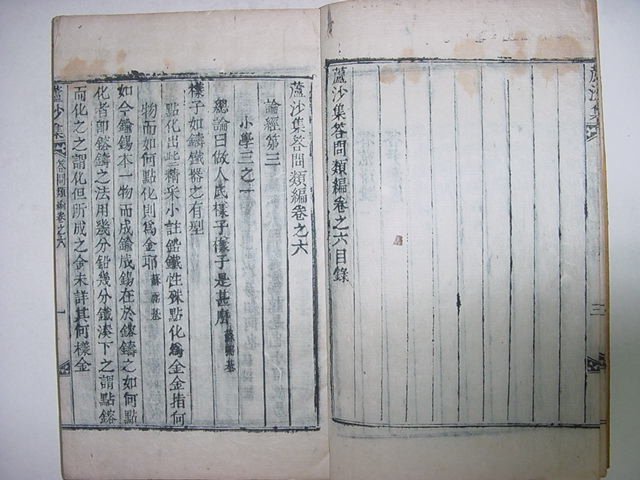 蘆沙集
三
蘆沙集答問類編卷之六目錄
蘆沙集答問類編卷之六
論經第三
小學三之一
總論曰做人氏樣子樣子是甚麽
樣子如鑄鐵器之有型
點化出些精采小註鉛鐵性殊點化爲金金指何
物而如何點化則爲金耶
如今鍮錫本一物而成鍮成錫在於鎔鑄之如何點
化者卽鎔鑄之法用幾分鉛幾分鐵湊下之謂點鎔
而化之之謂化但所成之金未詳其何樣金
蘆沙集
答問類編卷之六
一